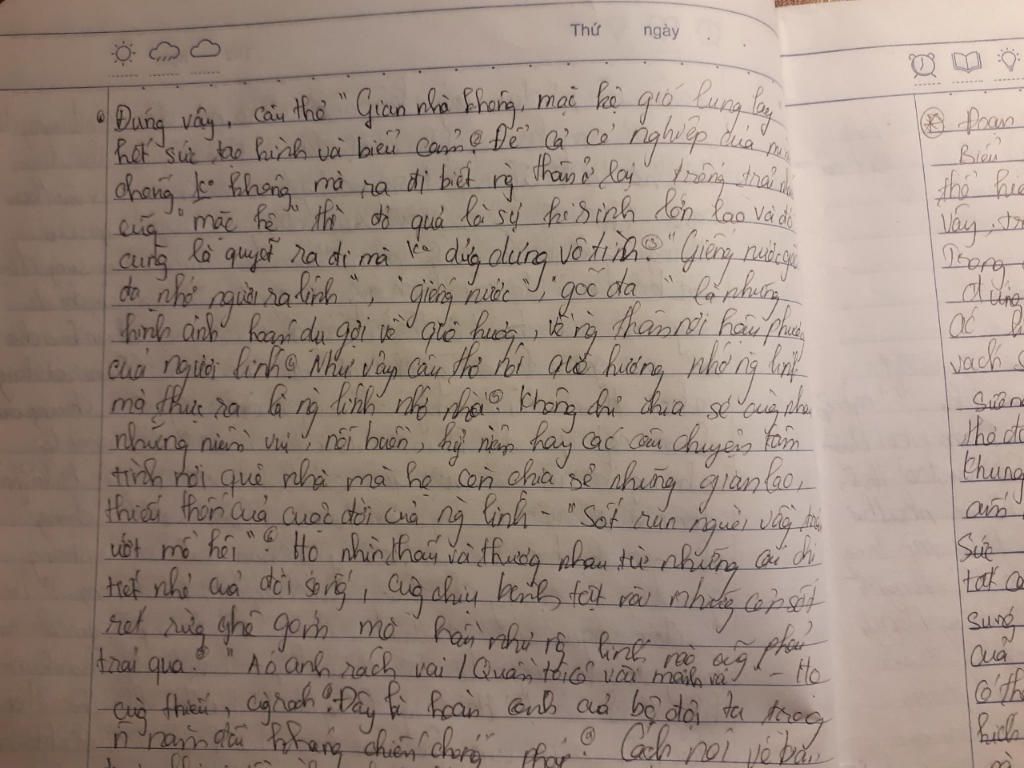 Thứ ngày
Đúng vậy, câu thơ "Gian nhà không, mặc kệ gió lung lay"
hết sức tạo hình và biểu cảm. Để cả cơ nghiệp của mình
chống ko không mà ra đi biết ng thân ở lại trống trải
cũg "mặc kệ" thì đó quả là sự hi sinh lớn lao và đó
cũng là quyết ra đi mà ko dửg dưng vô tình. "Giếng nước gốc
đa nhớ người ra lính", "giếng nước", "gốc đa" là những
hình ảnh hoán dụ gợi về quê hươg, về ng thân nơi hậu phươg
của người lính. Như vậy câu thơ nói quê hương nhớ ng lính
mà thực ra là ng lính nhớ nhà. Không chỉ chia sẻ cùng nhau
những niềm vui, nỗi buồn, kỷ niệm hay các câu chuyện tâm
tình nơi quê nhà mà họ còn chia sẻ những gian lao,
thiếu thốn của cuộc đời của ng lính - "Sốt run người vầg trán
ướt mồ hôi". Họ nhìn thấy và thương nhau từ những cái chi
tiết nhỏ của đời sốg, cùg chịu bệnh tật với nhữg cơn sốt
rét rừg ghê gớm mà hần như ng lính nào cũg phải
trải qua. "Áo anh rách vai / Quần tôi có vài mảnh vá" - Họ
cùg thiếu, cùg rách. Đây là hoàn cảnh củả bộ đội ta trog
n năm đầu kháng chiến chốg pháp. Cách nói về
Đoạn
Biểu
thể hiệ
vậy, tr
Trong
vạch s
thơ đ
khung
Sức
súng
quả
có th